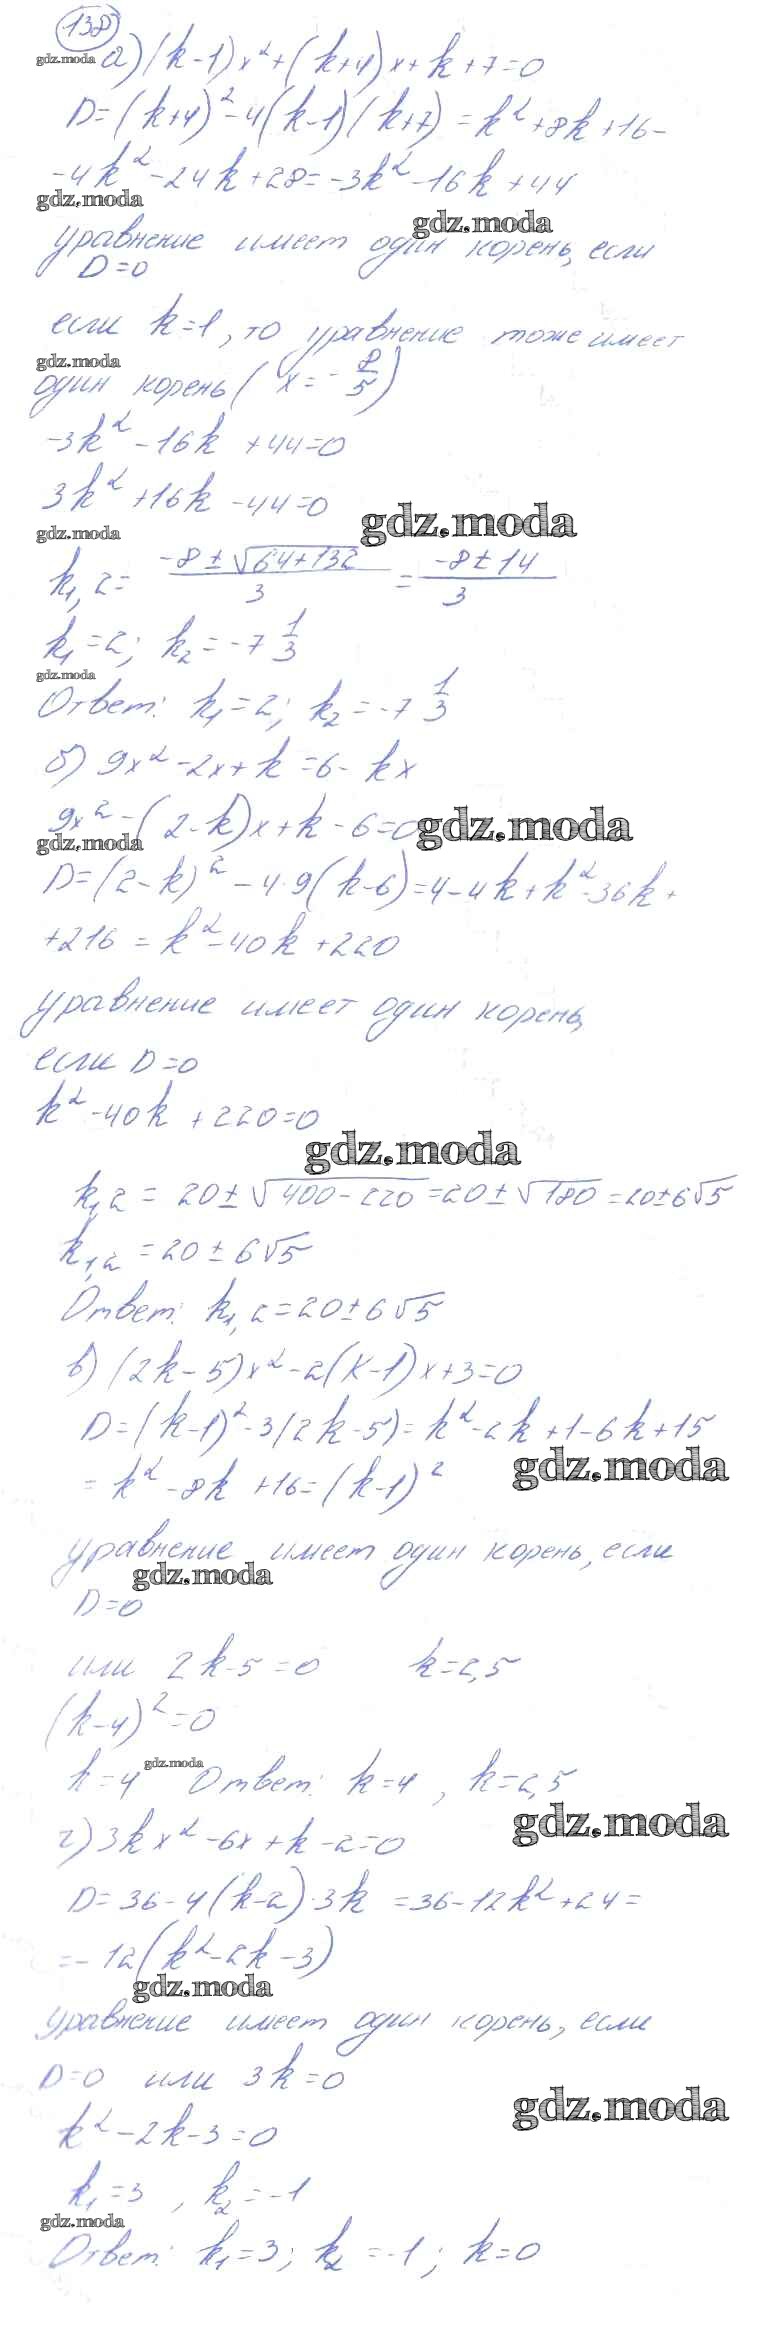 138
gdz.moda
а) (k-1)x²+(k+4)x+k+7=0
D=(k+4)²-4(k-1)(k+7)=k²+8k+16-
-4k²-24k+28=-3k²-16k+44
gdz.moda
gdz.moda
уравнение имеет один корень, если
D=0
если k=1, то уравнение тоже имеет
gdz.moda
один корень (x=-8/5)
-3k²-16k+44=0
3k²+16k-44=0
gdz.moda
gdz.moda
k₁,₂= (-8±√(64+132))/3 = (-8±14)/3
k₁=2; k₂=-7 1/3
gdz.moda
Ответ: k₁=2; k₂=-7 1/3
б) 9x²-2x+k=6-kx
9x²-(2-k)x+k-6=0
gdz.moda
gdz.moda
D=(2-k)²-4·9(k-6)=4-4k+k²-36k+
+216=k²-40k+220
уравнение имеет один корень,
если D=0
k²-40k+220=0
gdz.moda
k₁,₂=20±√(400-220)=20±√180=20±6√5
k₁,₂=20±6√5
Ответ: k₁,₂=20±6√5
в) (2k-5)x²-2(k-1)x+3=0
D=(k-1)²-3(2k-5)=k²-2k+1-6k+15
gdz.moda
=k²-8k+16=(k-1)²
уравнение имеет один корень, если
gdz.moda
D=0
или 2k-5=0 k=2,5
(k-4)²=0
gdz.moda
k=4 Ответ: k=4, k=2,5
gdz.moda
г) 3kx²-6x+k-2=0
D=36-4(k-2)·3k=36-12k²+24=
=-12(k²-2k-3)
gdz.moda
уравнение имеет один корень, если
D=0 или 3k=0
gdz.moda
k²-2k-3=0
k₁=3, k₂=-1
gdz.moda
Ответ: k₁=3; k₂=-1; k=0